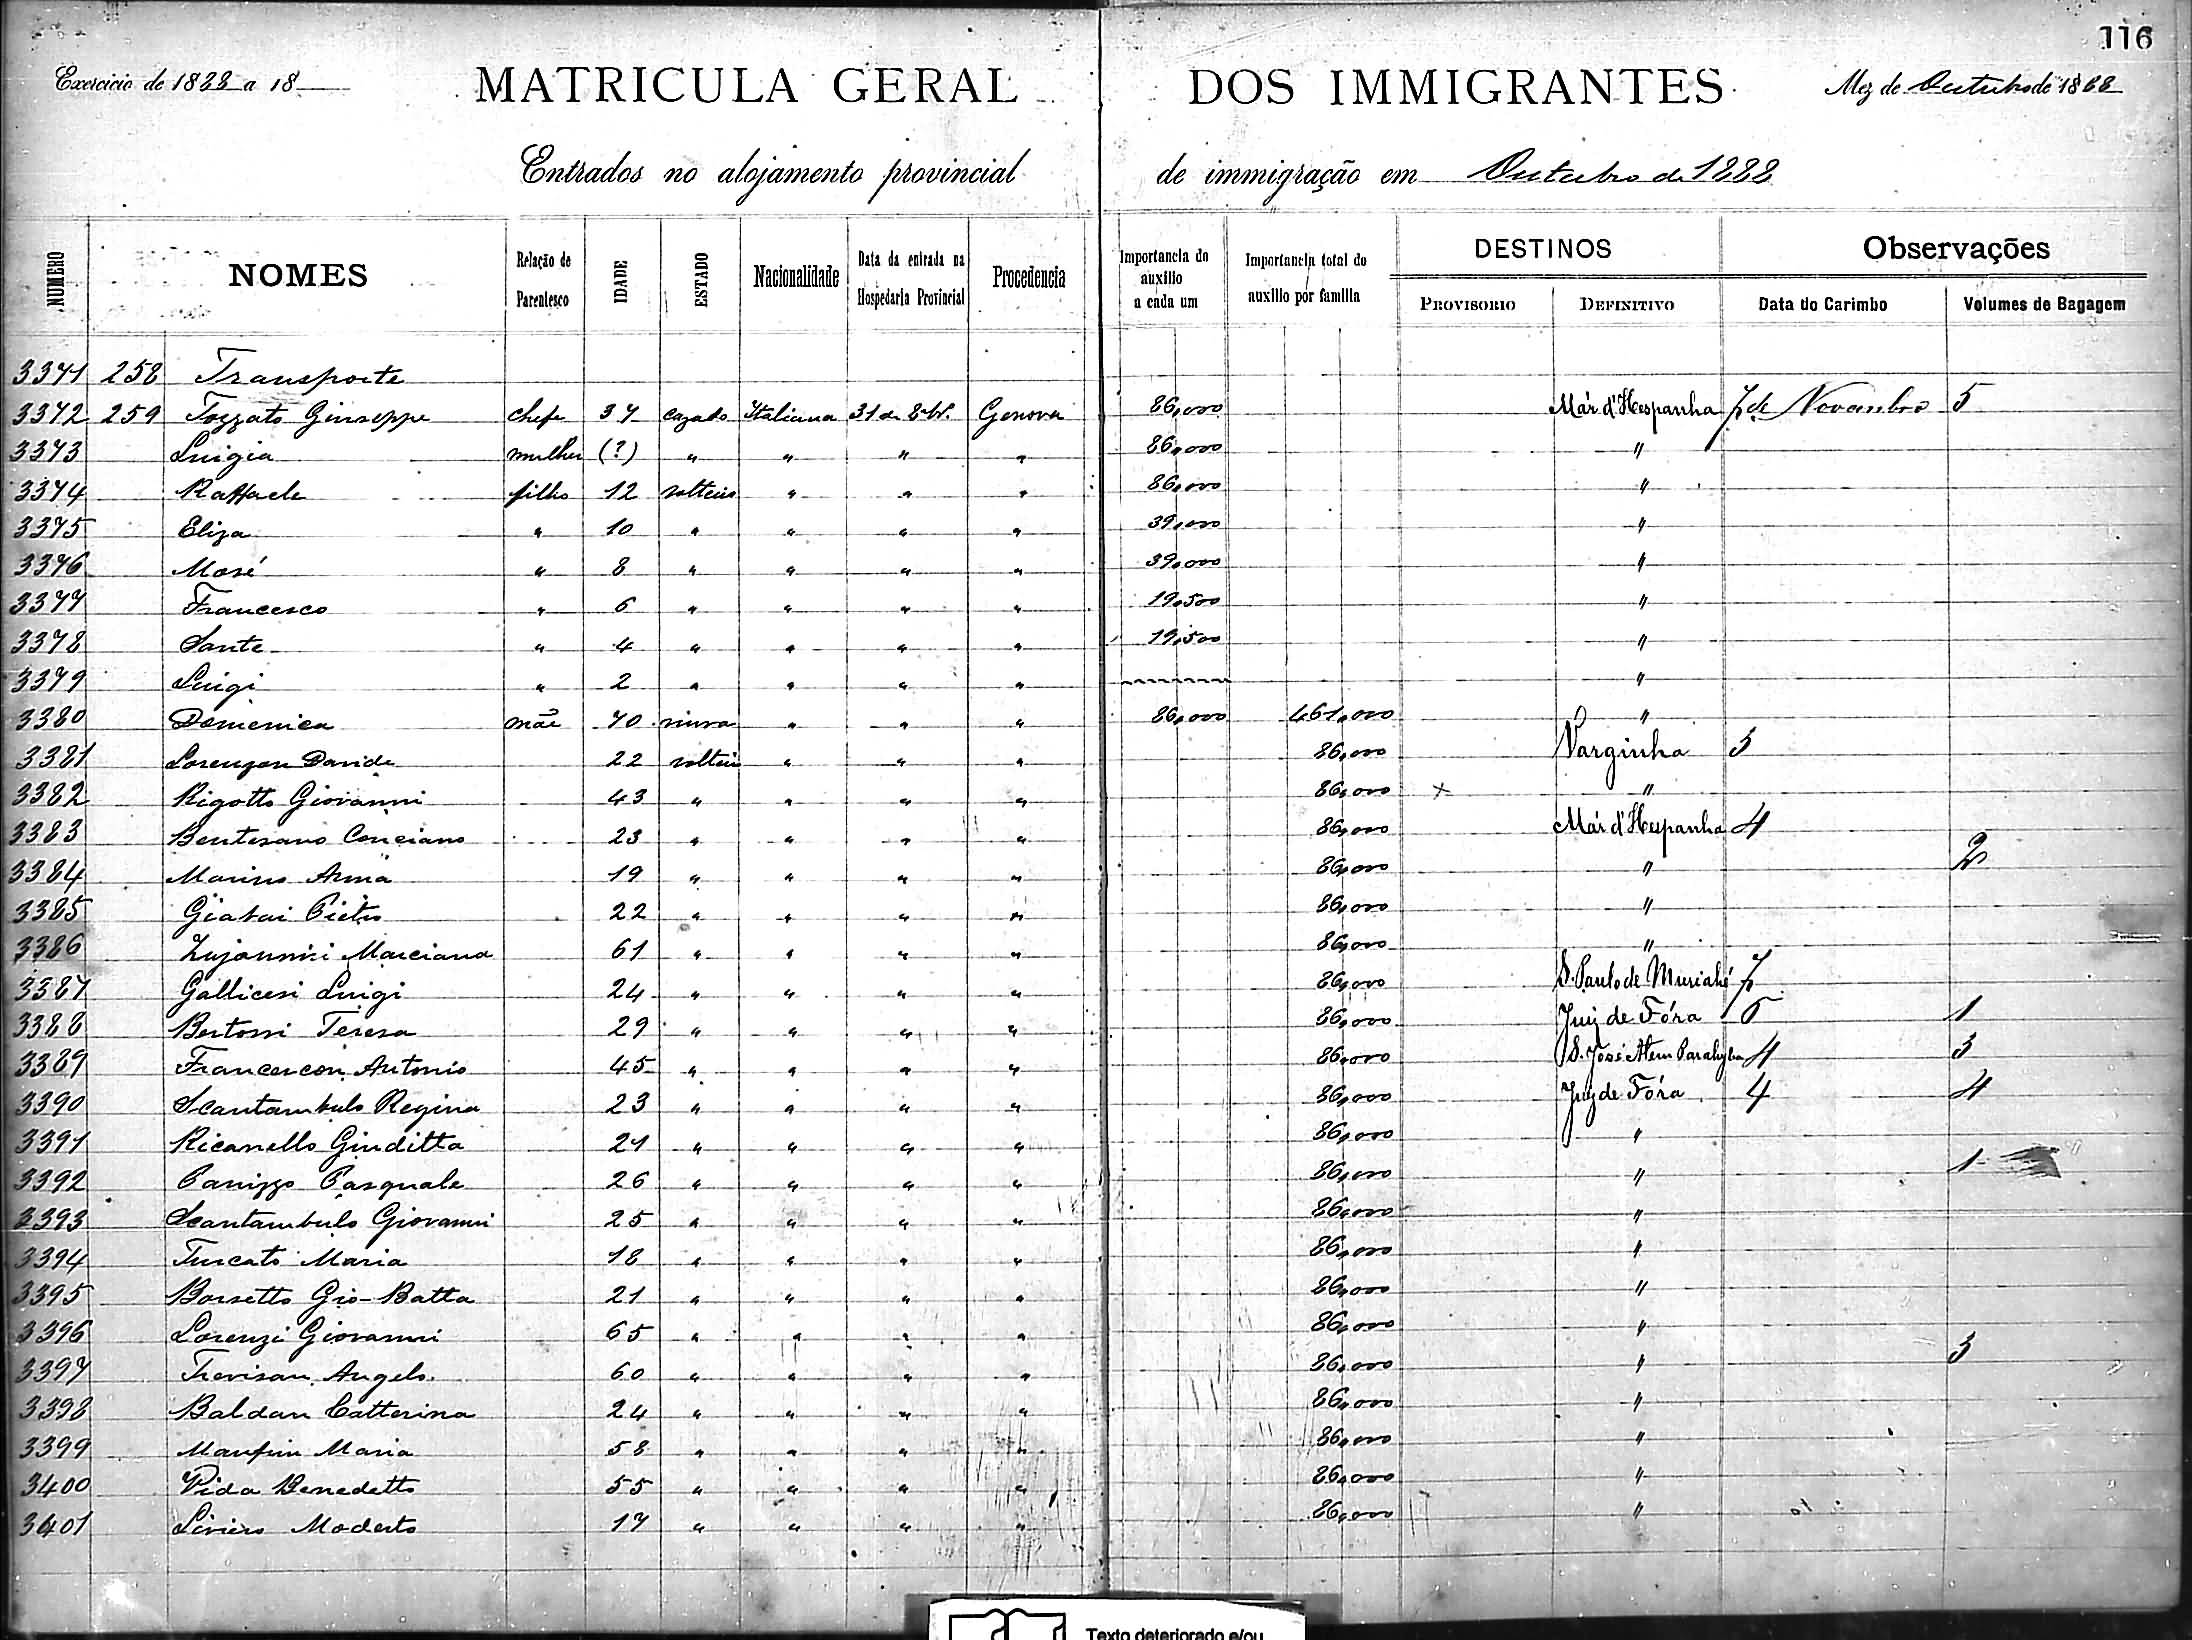 116
Exercicio de 1888 a 18
MATRICULA GERAL DOS IMMIGRANTES
Mez de Outubro de 1888
Entrados no alojamento provincial de immigração em Outubro de 1888
NUMERO NOMES Relação de Parentesco IDADE ESTADO Nacionalidade Data da entrada na Hospedaria Provincial Procedencia Importancia do auxilio a cada um Importancia total do auxilio por familia DESTINOS PROVISORIO DEFINITIVO Observações Data do Carimbo Volumes de Bagagem
3371 258 Transporte
3372 259 Tozzato Giuseppe chefe 37 cazado Italiana 31 de 8br. Genova 86,000 Mar d'Hespanha 7 de Novembro 5
3373 Luigia mulher (?) " " " " 86,000 "
3374 Raffaele filho 12 solteiro " " " 86,000 "
3375 Eliza " 10 " " " " 39,000 "
3376 Mosé " 8 " " " " 39,000 "
3377 Francesco " 6 " " " " 19,500 "
3378 Sante " 4 " " " " 19,500 "
3379 Luigi " 2 " " " " "
3380 Domenica mãe 70 viuva " " " 86,000 461,000 "
3381 Lorenzon Davide 22 solteiro " " " 86,000 Varginha 5
3382 Rigotto Giovanni 43 " " " " 86,000 × "
3383 Conciano 23 " " " " 86,000 Mar d'Hespanha 4
3384 Marino Anna 19 " " " " 86,000 " 2
3385 Pietro 22 " " " " 86,000 "
3386 Marciana 61 " " " " 86,000 "
3387 Gallicesi Luigi 24 " " " " 86,000 S. Paulo de Muriahé 7
3388 Teresa 29 " " " " 86,000 Juiz de Fóra 6 1
3389 Francescon Antonio 45 " " " " 86,000 S. José Alem Parahyba 4 3
3390 Scantambulo Regina 23 " " " " 86,000 Juiz de Fóra 4 4
3391 Ricanello Giuditta 21 " " " " 86,000 "
3392 Panizzo Pasquale 26 " " " " 86,000 " 1
3393 Scantambulo Giovanni 25 " " " " 86,000 "
3394 Turcato Maria 18 " " " " 86,000 "
3395 Borsetto Gio-Batta 21 " " " " 86,000 "
3396 Lorenzi Giovanni 65 " " " " 86,000 "
3397 Trevisan Angelo 60 " " " " 86,000 " 3
3398 Baldan Catterina 24 " " " " 86,000 "
3399 Manfrin Maria 58 " " " " 86,000 "
3400 Vida Benedetto 55 " " " " 86,000 "
3401 Liviero Modesto 17 " " " " 86,000 "
Texto deteriorado e/ou